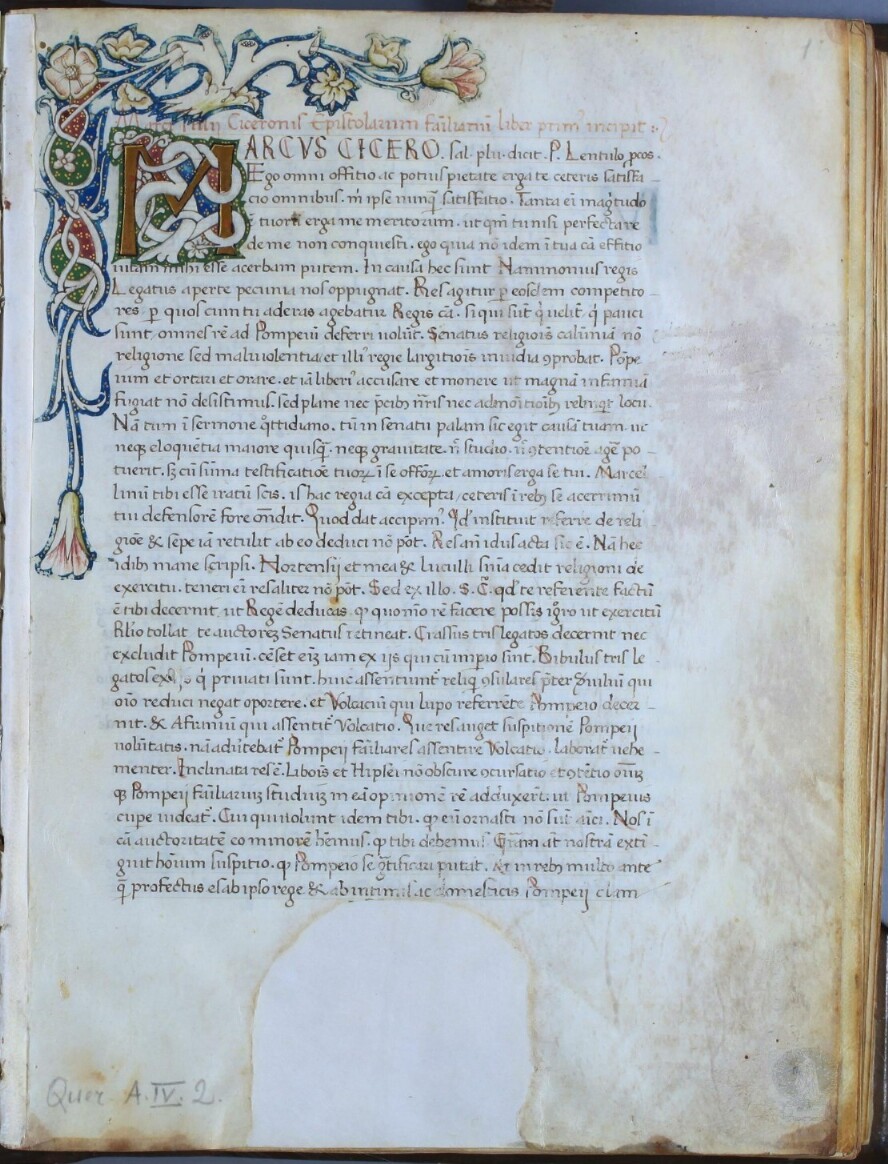 1
Marci Tulij Ciceronis Epistolarum familiariũ liber primꝰ incipit :
MARCVS CICERO . sal . plu . dicit . P. Lentulo ꝓcos .
Ego omni offitio . ac potius pietate erga te ceteris satisfa
cio omnibus . m̃ ipse nunq̃ satisfatio . Tanta eĩ magtudo
ẽ tuorũ erga me meritorum . ut qm̃ tu nisi perfecta re
de me non conquiesti . ego quia nõ idem ĩ tua cã effitio
uitam mihi esse acerbam putem . In causa hec sunt Nammonius regis
Legatus aperte pecunia nos oppugnat . Res agitur ꝑ eosdem competito
res . ꝑ quos cum tu aderas agebatur Regis cã . si qui sũt q̃ uelĩt . q̃ pauci
sunt , omnes rẽ ad Pompeiũ deferri uolũt . Senatus religiois calũniã nõ
religione sed maliuolentia et illiꝰ regie largitiois inuidia ꝯprobat . Põpe
ium et ortari et orare . et iã liberiꝰ accusare et monere ut magnã infamiã
fugiat nõ desistimus . sed plane nec p̃cibꝫ nr̃is nec admoitioibꝫ relinq̃t locũ .
Nã tum ĩ sermone q̃ttidiano . tũ in senatu palam sic egit causã tuam . ut
neqꝫ eloquẽtia maiore quisq̃ . neqꝫ grauitate . ñ studio . ñ ꝯtentioẽ agẽ po
tuerit . sꝫ cũ sũma testificatioẽ tuoꝝ ĩ se offõꝝ . et amoris erga te tui . Marcel
linũ tibi esse iratũ scis . is hac regia cã excepta / ceteris ĩ rebꝫ se acerrimũ
tui defensorẽ fore oñdit . Quod dat accipimꝰ . Qd̃ instituit referre de reli
gioẽ & sepe iã retulit ab eo deduci nõ põt . Res añ idus acta sic ẽ . Nã hec
idibꝫ mane scripsi . Hortensij et mea & Luculli sñia cedit religioni de
exercitu . teneri eĩ res aliter nõ põt . Sed ex illo . S. C̃ . qd̃ te referente factũ
ẽ tibi decernit , ut Regẽ deducas . qꝫ quomõ rẽ facere possis . ut exercitũ
Rlio tollat te auctorẽ Senatus retineat . Crassus tris legatos decernit nec
excludit Pompeiũ . cẽset eĩꝫ iam ex ijs qui cũ imperio sint . Bibulus tris le
gatos ex ijs q̃ priuati sunt . huic assentiunt̃ reliq̃ ꝯsulares p̃ter Seruiliũ qui
oĩo reduci negat oportere . et Volcaciũ qui lupo referrẽte Pompeio decer
nit . & Afraniũ qui assentit̃ Volcatio . Que res auget suspitionẽ Pompeij
uolũtatis . nã aduertebat̃ Pompeij familiares assentire Volcatio . laborat̃ uehe
menter . Inclinata res ẽ . Libois et Hipsei nõ obscure ꝯcursatio et ꝯtẽtio omniũ
qꝫ Pompeij familiariũ studiũ in eã opinionẽ rẽ adduxerũt . ut Pompeius
cupe uideat̃ . Cui qui nolunt idem tibi . qꝫ eũ ornasti nõ sũt amici . Nos ĩ
cã auctoritatẽ eo minorẽ hẽmus . qꝫ tibi debemus . Gratiam at̃ nostrã exti
guit hoĩum suspitio . qꝫ Pompeio se gratificari putãt . ut in rebꝫ multo ante
q̃ profectus es ab ipso rege & ab intimis ac domesticis Pompeij clam
Quer A.IV.2.